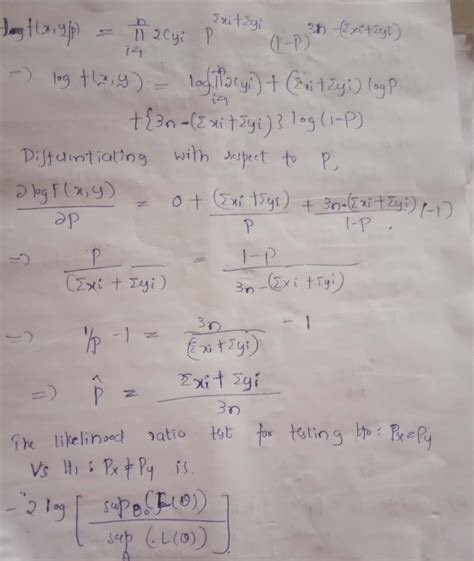 log f(x,y/p) = ∏_{i=1}^{n} 2Cyi p^{Σxi+Σyi} (1-P)^{3n-(Σxi+Σyi)}
=) log f(x,y) = log(∏_{i=1}^{n} 2Cyi) + (Σxi+Σyi) logP
+ {3n-(Σxi+Σyi)} log(1-P)
Differentiating with respect to P,
∂logf(x,y)/∂p = 0 + (Σxi+Σyi)/p + 3n-(Σxi+Σyi)/1-P (-1)
=) P/(Σxi + Σyi) = 1-P/3n-(Σxi+Σyi)
=) 1/p -1 = 3n/(Σxi+Σyi) -1
=) p̂ = Σxi+Σyi/3n
The likelihood ratio test for testing H0: Px=Py
Vs H1: Px≠Py is
-2 log [sup_{θ0}(L(θ))/sup (.L(θ))]